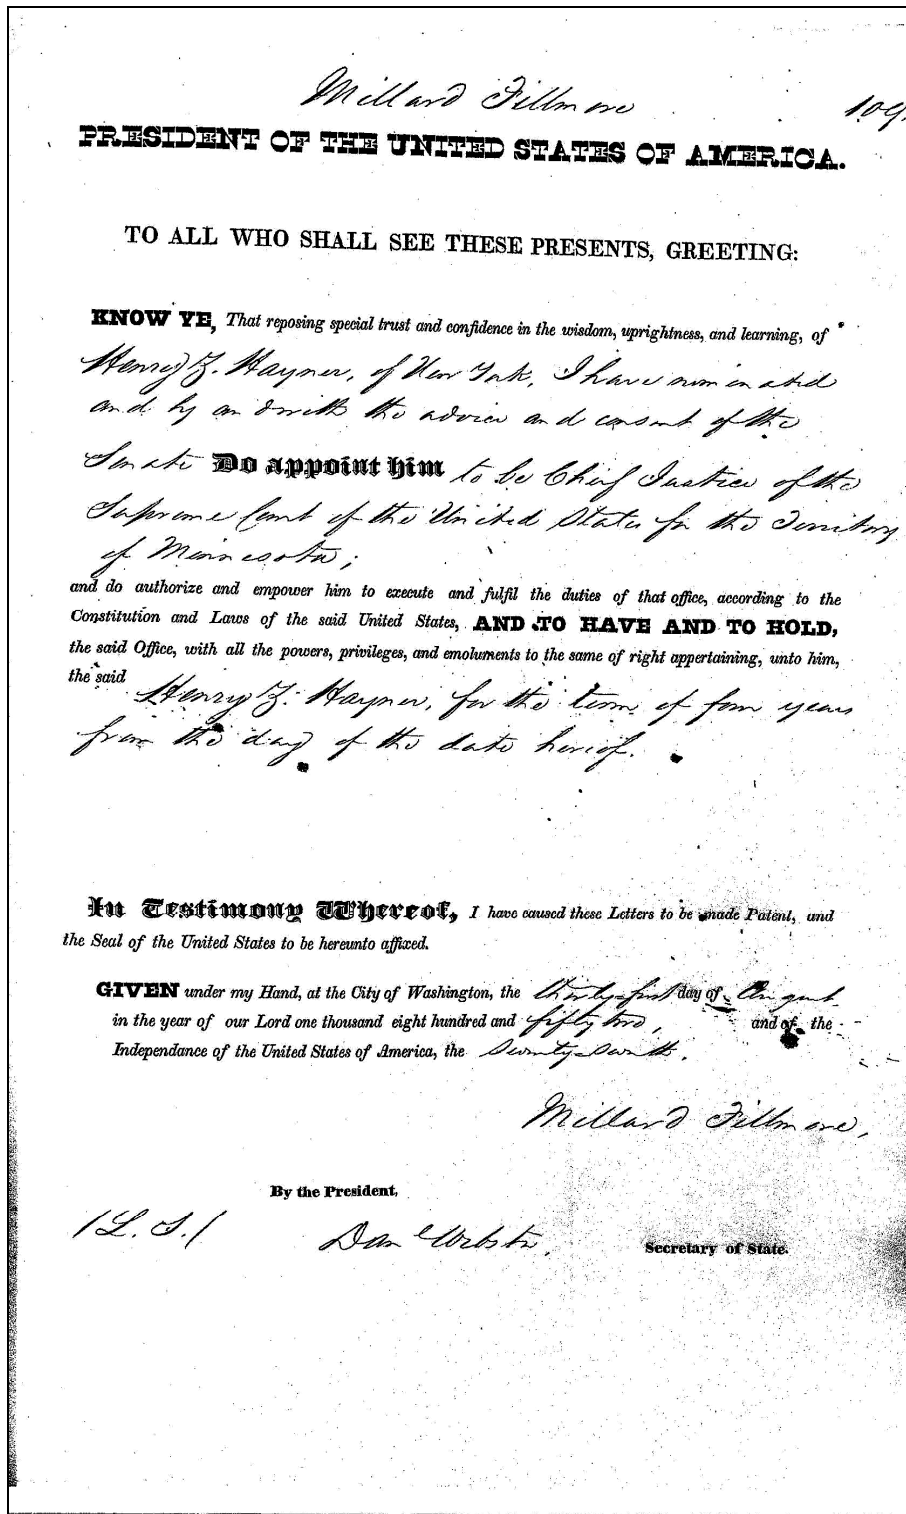 Millard Fillmore 109.
PRESIDENT OF THE UNITED STATES OF AMERICA.
TO ALL WHO SHALL SEE THESE PRESENTS, GREETING:
KNOW YE, That reposing special trust and confidence in the wisdom, uprightness, and learning, of
Henry Z. Hayner, of New York, I have nominated
and by and with the advice and consent of the
Senate Do appoint him to be Chief Justice of the
Supreme Court of the United States for the Territory
of Minnesota;
and do authorize and empower him to execute and fulfil the duties of that office, according to the
Constitution and Laws of the said United States, AND TO HAVE AND TO HOLD,
the said Office, with all the powers, privileges, and emoluments to the same of right appertaining, unto him,
the said Henry Z. Hayner, for the term of four years
from the day of the date hereof.
In Testimony Whereof, I have caused these Letters to be made Patent, and
the Seal of the United States to be hereunto affixed.
GIVEN under my Hand, at the City of Washington, the thirty-first day of August
in the year of our Lord one thousand eight hundred and fifty two, and of the
Independance of the United States of America, the Seventy-Seventh.
Millard Fillmore,
By the President,
(L. S.)
Danl Webster, Secretary of State.